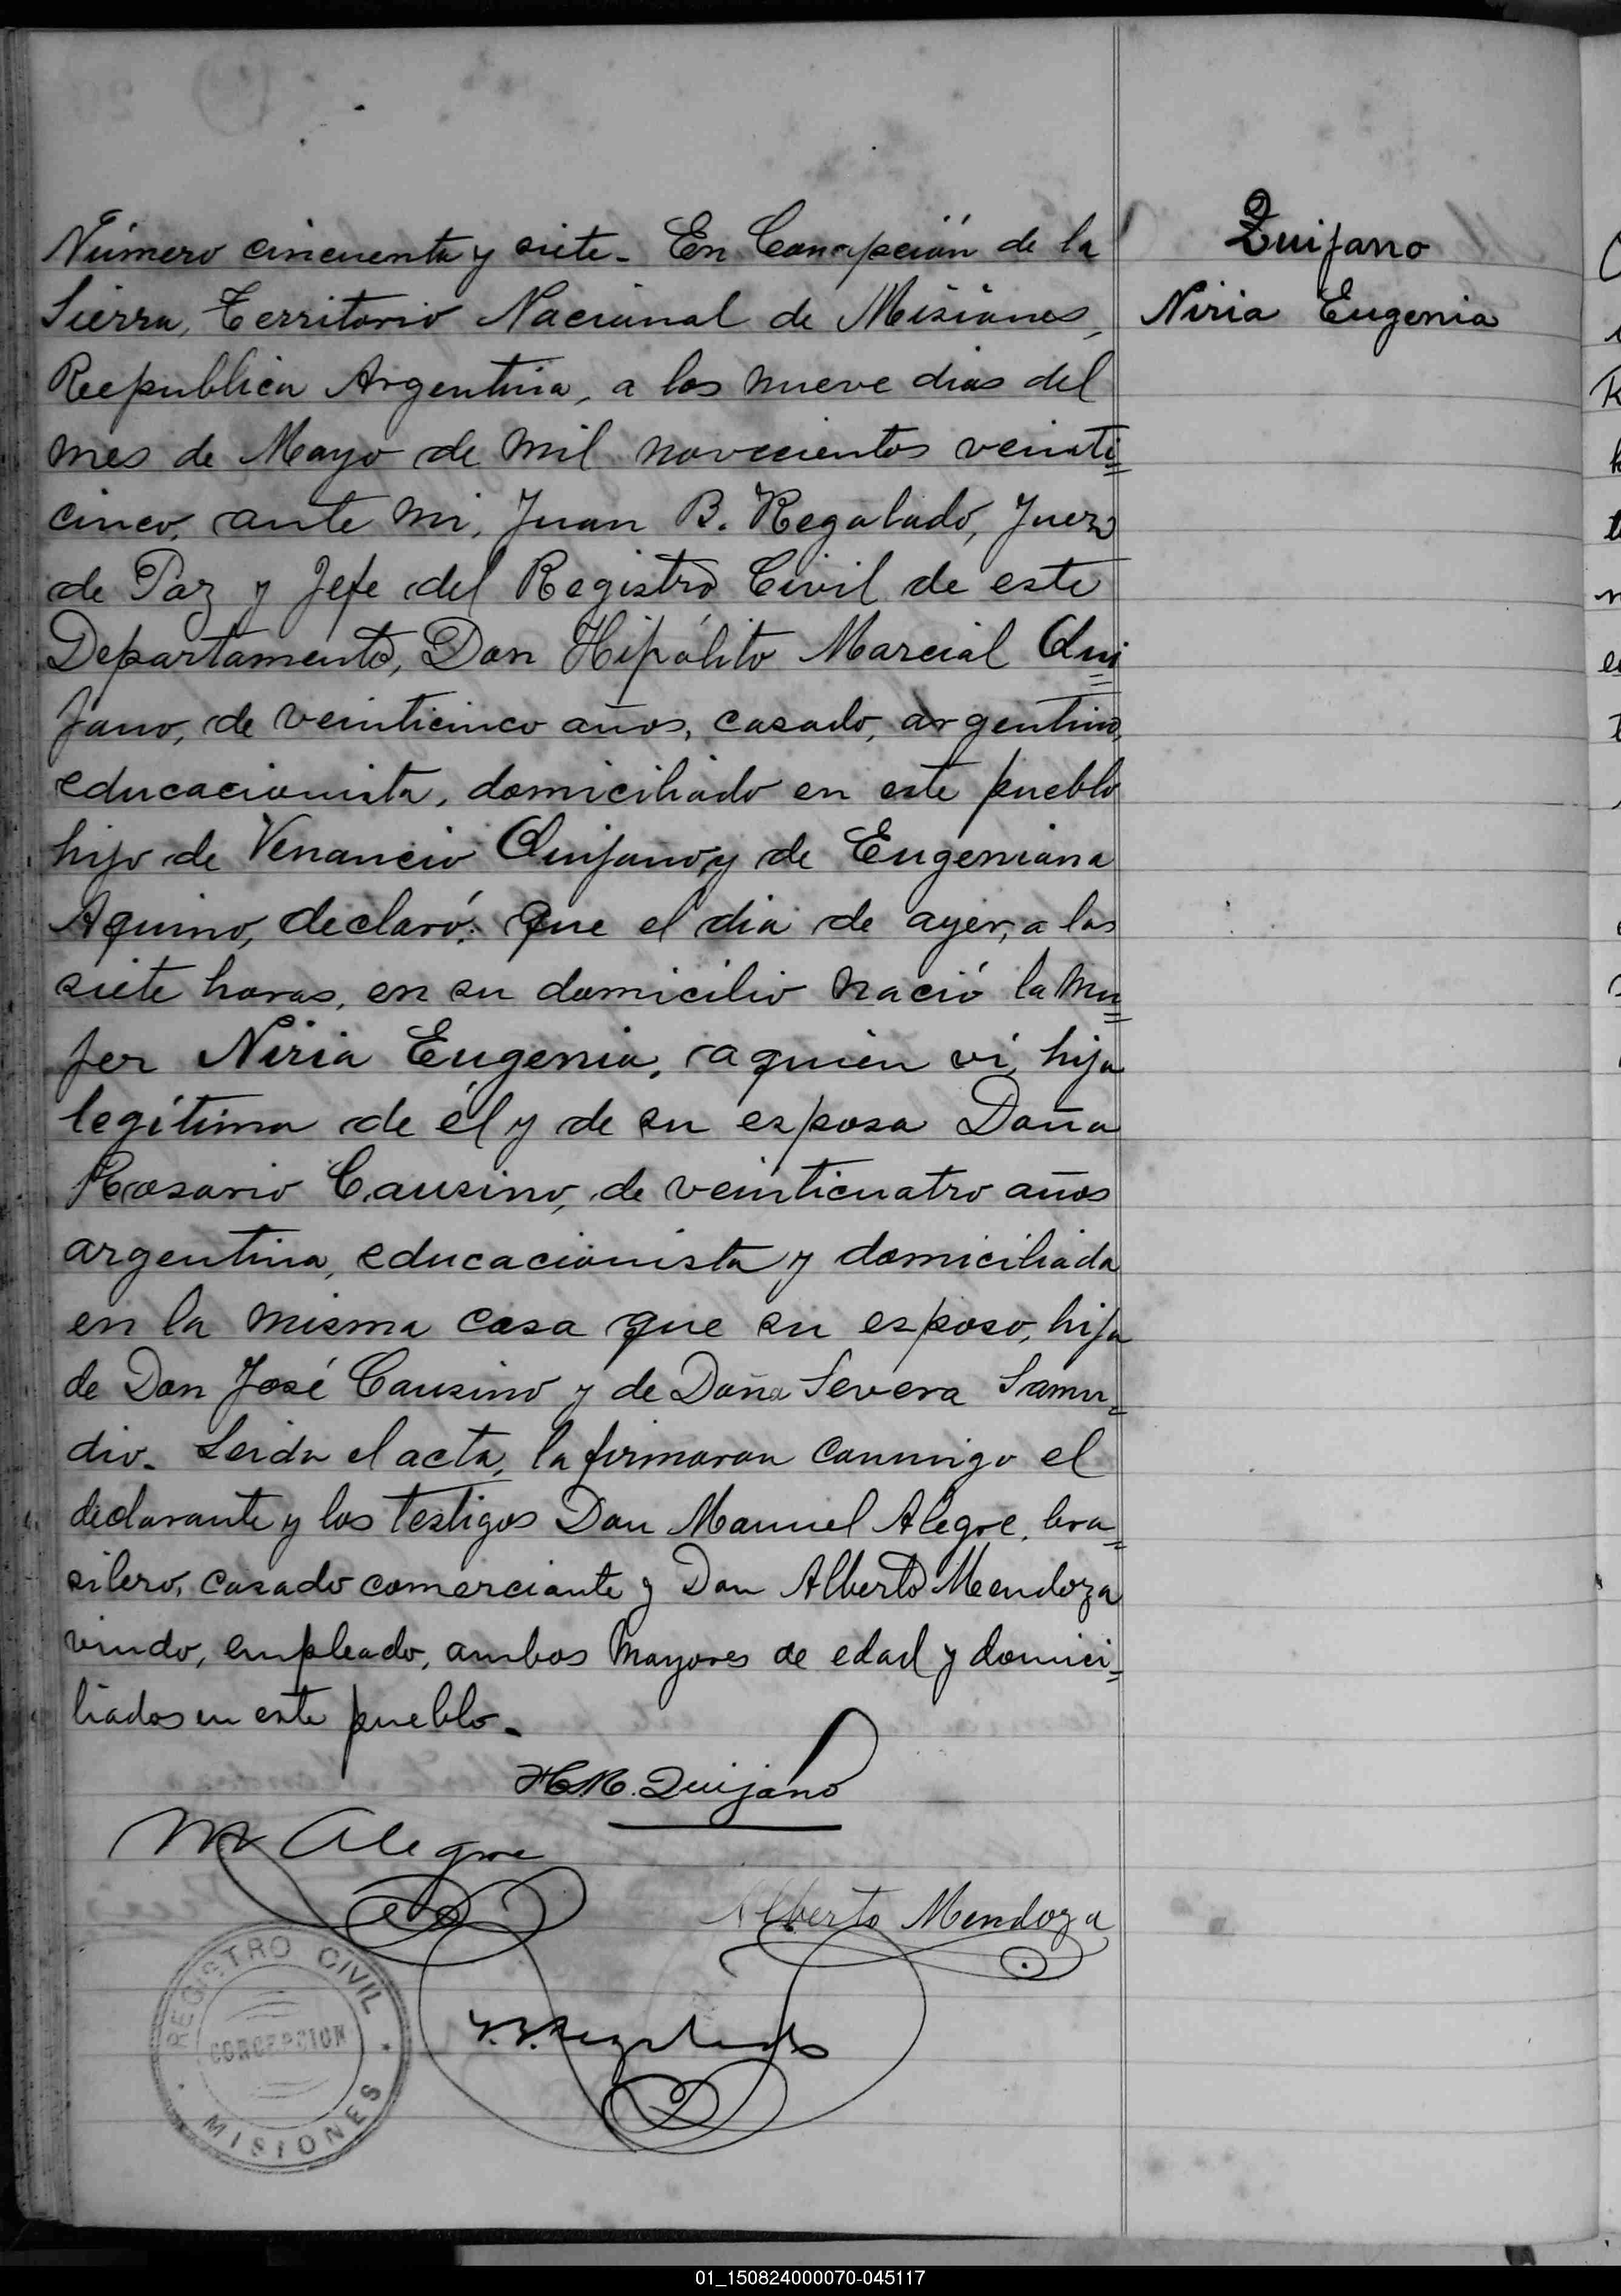 Quijano
Niria Eugenia
Número cincuenta y siete. En Concepción de la
Sierra, Territorio Nacional de Misiones,
Reepublica Argentina, a los nueve dias del
mes de Mayo de mil novecientos veinti=
cinco, ante mi, Juan B. Regalado, Juez
de Paz y Jefe del Registro Civil de este
Departamento, Don Hipólito Marcial Qui=
jano, de veinticinco años, casado, argentino,
educacionista, domiciliado en este pueblo
hijo de Venancio Quijano y de Eugeniana
Aquino, declaró: Que el dia de ayer, a las
siete horas, en su domicilio nació la mu=
jer Niria Eugenia, a quien vi, hija
legítima de él y de su esposa Doña
Rosario Causino, de veinticuatro años
argentina, educacionista y domiciliada
en la misma casa que su esposo, hija
de Don José Causino y de Doña Severa Samu=
dio. Leida el acta, la firmaron conmigo el
declarante y los testigos Don Manuel Alegre, bra=
silero, casado comerciante y Don Alberto Mendoza
viudo, empleado, ambos mayores de edad y domici=
liados en este pueblo.
H.M. Quijano
M Alegre
Alberto Mendoza
J.B. Regalado
REGISTRO CIVIL
CONCEPCION
MISIONES
01_150824000070-045117